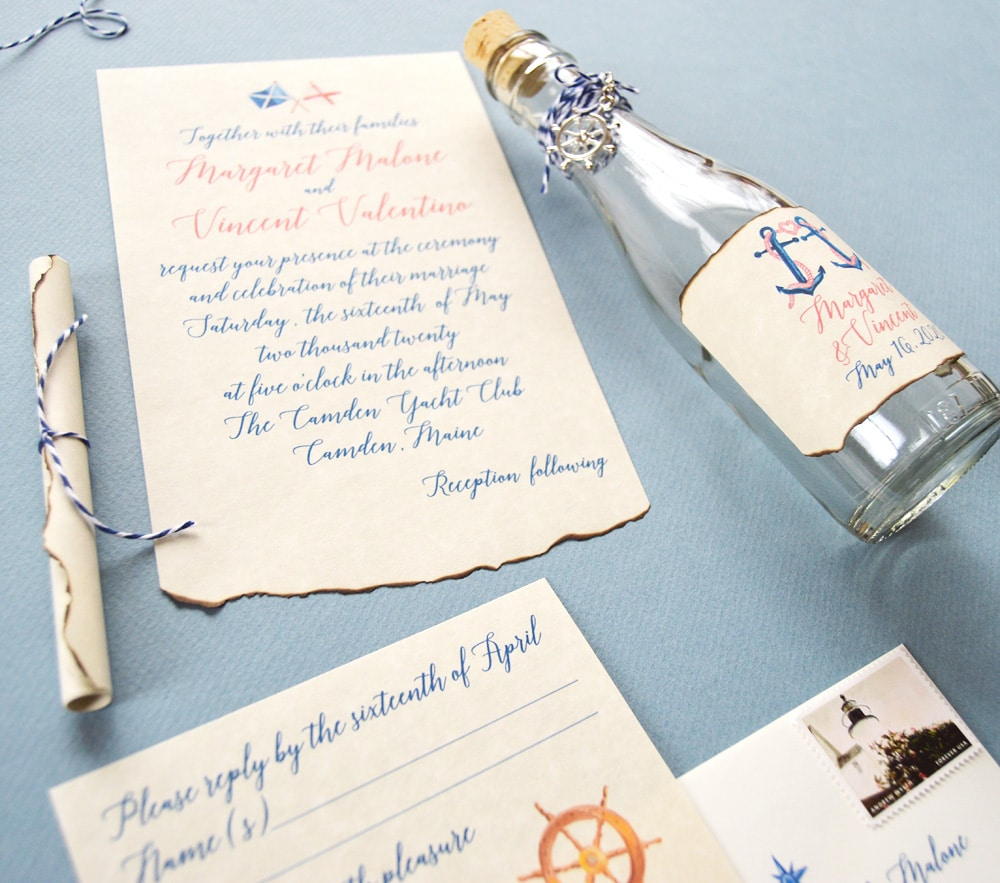 Together with their families
Margaret Malone
and
Vincent Valentino
request your presence at the ceremony
and celebration of their marriage
Saturday, the sixteenth of May
two thousand twenty
at five o'clock in the afternoon
The Camden Yacht Club
Camden, Maine
Reception following
Margaret
& Vincent
May 16, 202
Please reply by the sixteenth of April
Name(s)
pleasure
FOREVER USA
ANDREW WYETH
Malone